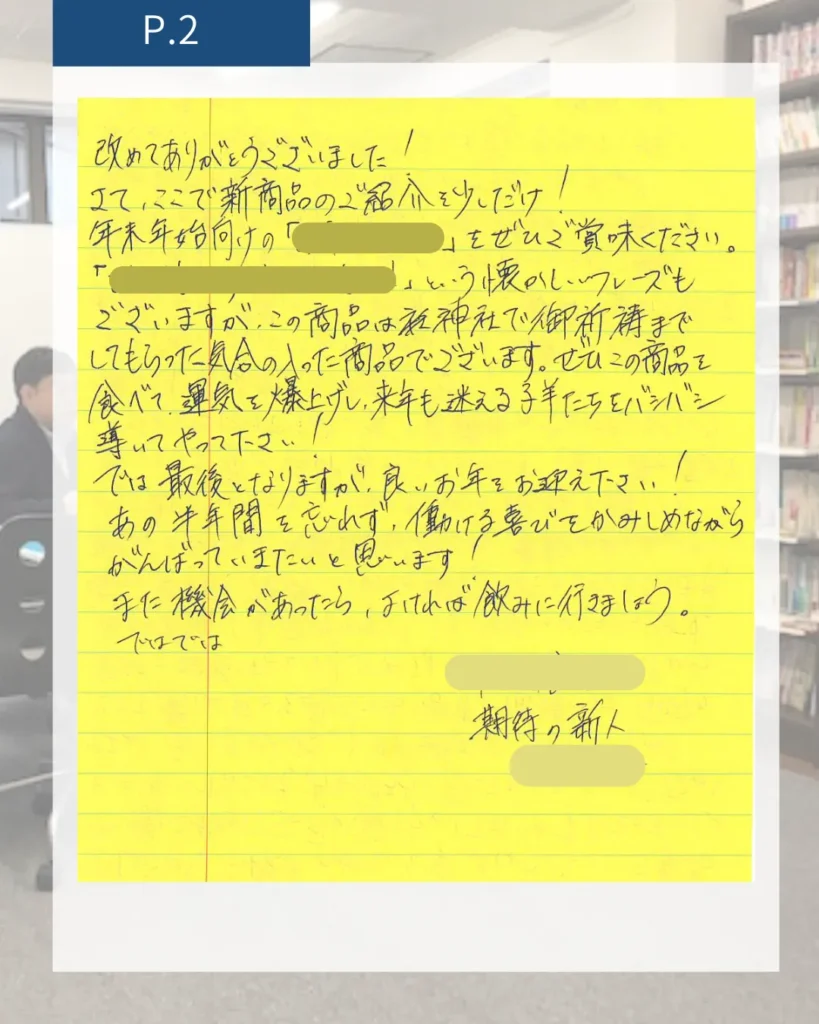 P.2
改めてありがとうございました!
さて、ここで新商品のご紹介を少しだけ!
年末年始向けの「」をぜひご賞味ください。
「」という懐かしいフレーズも
ございますが、この商品は神社で御祈祷まで
してもらった気合の入った商品でございます。ぜひこの商品を
食べて、運気を爆上げし、来年も迷える子羊たちをバシバシ
導いてやって下さい!
では最後となりますが、良いお年をお迎え下さい!
あの半年間を忘れず、働ける喜びをかみしめながら
がんばっていきたいと思います!
また機会があったら、よければ飲みに行きましょう。
ではでは
期待の新人